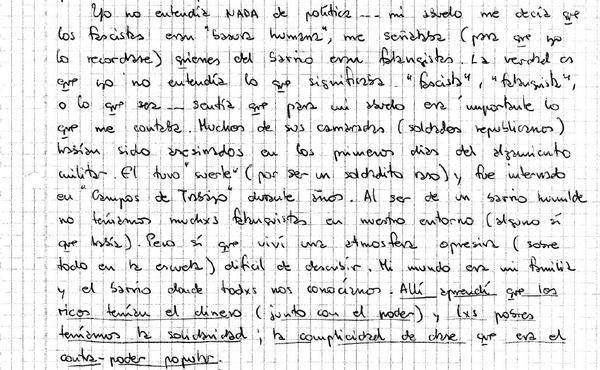 Yo no entendía NADA de política --- mi abuelo me decía que
los fascistas eran "basura humana", me señalaba (para que yo
lo recordase) quienes del barrio eran falangistas. La verdad es
que yo no entendía lo que significaba "fascista", "falangista",
o lo que sea --- sentía que para mi abuelo era importante lo
que me contaba. Muchos de sus camaradas (soldados republicanos)
habían sido asesinados en los primeros días del alzamiento
militar. El tuvo "suerte" (por ser un soldadito raso) y fue internado
en "Campos de Trabajo" durante años. Al ser de un barrio humilde
no teníamos muchxs falangistas en nuestro entorno (alguno sí
que había). Pero sí que viví una atmosfera opresiva (sobre
todo en la escuela) difícil de describir. Mi mundo era mi familia
y el barrio donde todxs nos conocíamos. Allí aprendí que los
ricos tenían el dinero (junto con el poder) y lxs pobres
teníamos la solidaridad; la complicidad de clase que era el
contra-poder popular.